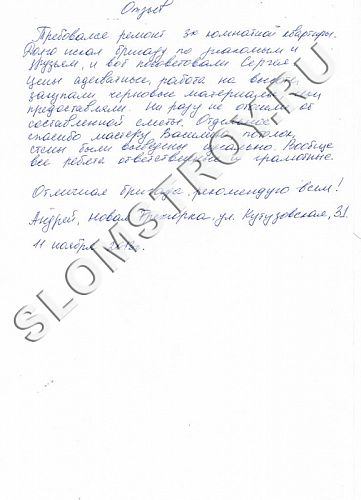 Отзыв
Требовался ремонт 3х комнатной квартиры.
Долго искал бригаду по знакомым и
друзьям, и вот посоветовали Сергея.
Цены адекватные, работа на высоте,
закупали черновые материалы сами
предоставляли. Ни разу не отошли от
составленной сметы. Отдельное
спасибо мастеру Василию, потолок,
стены были выведены идеально. Вообще
все ребята ответственные и грамотные.
Отличная бригада, рекомендую всем!
Андрей, Новая Трехгорка, ул. Кутузовская, 31
11 ноября
SLOMSTROY.RU